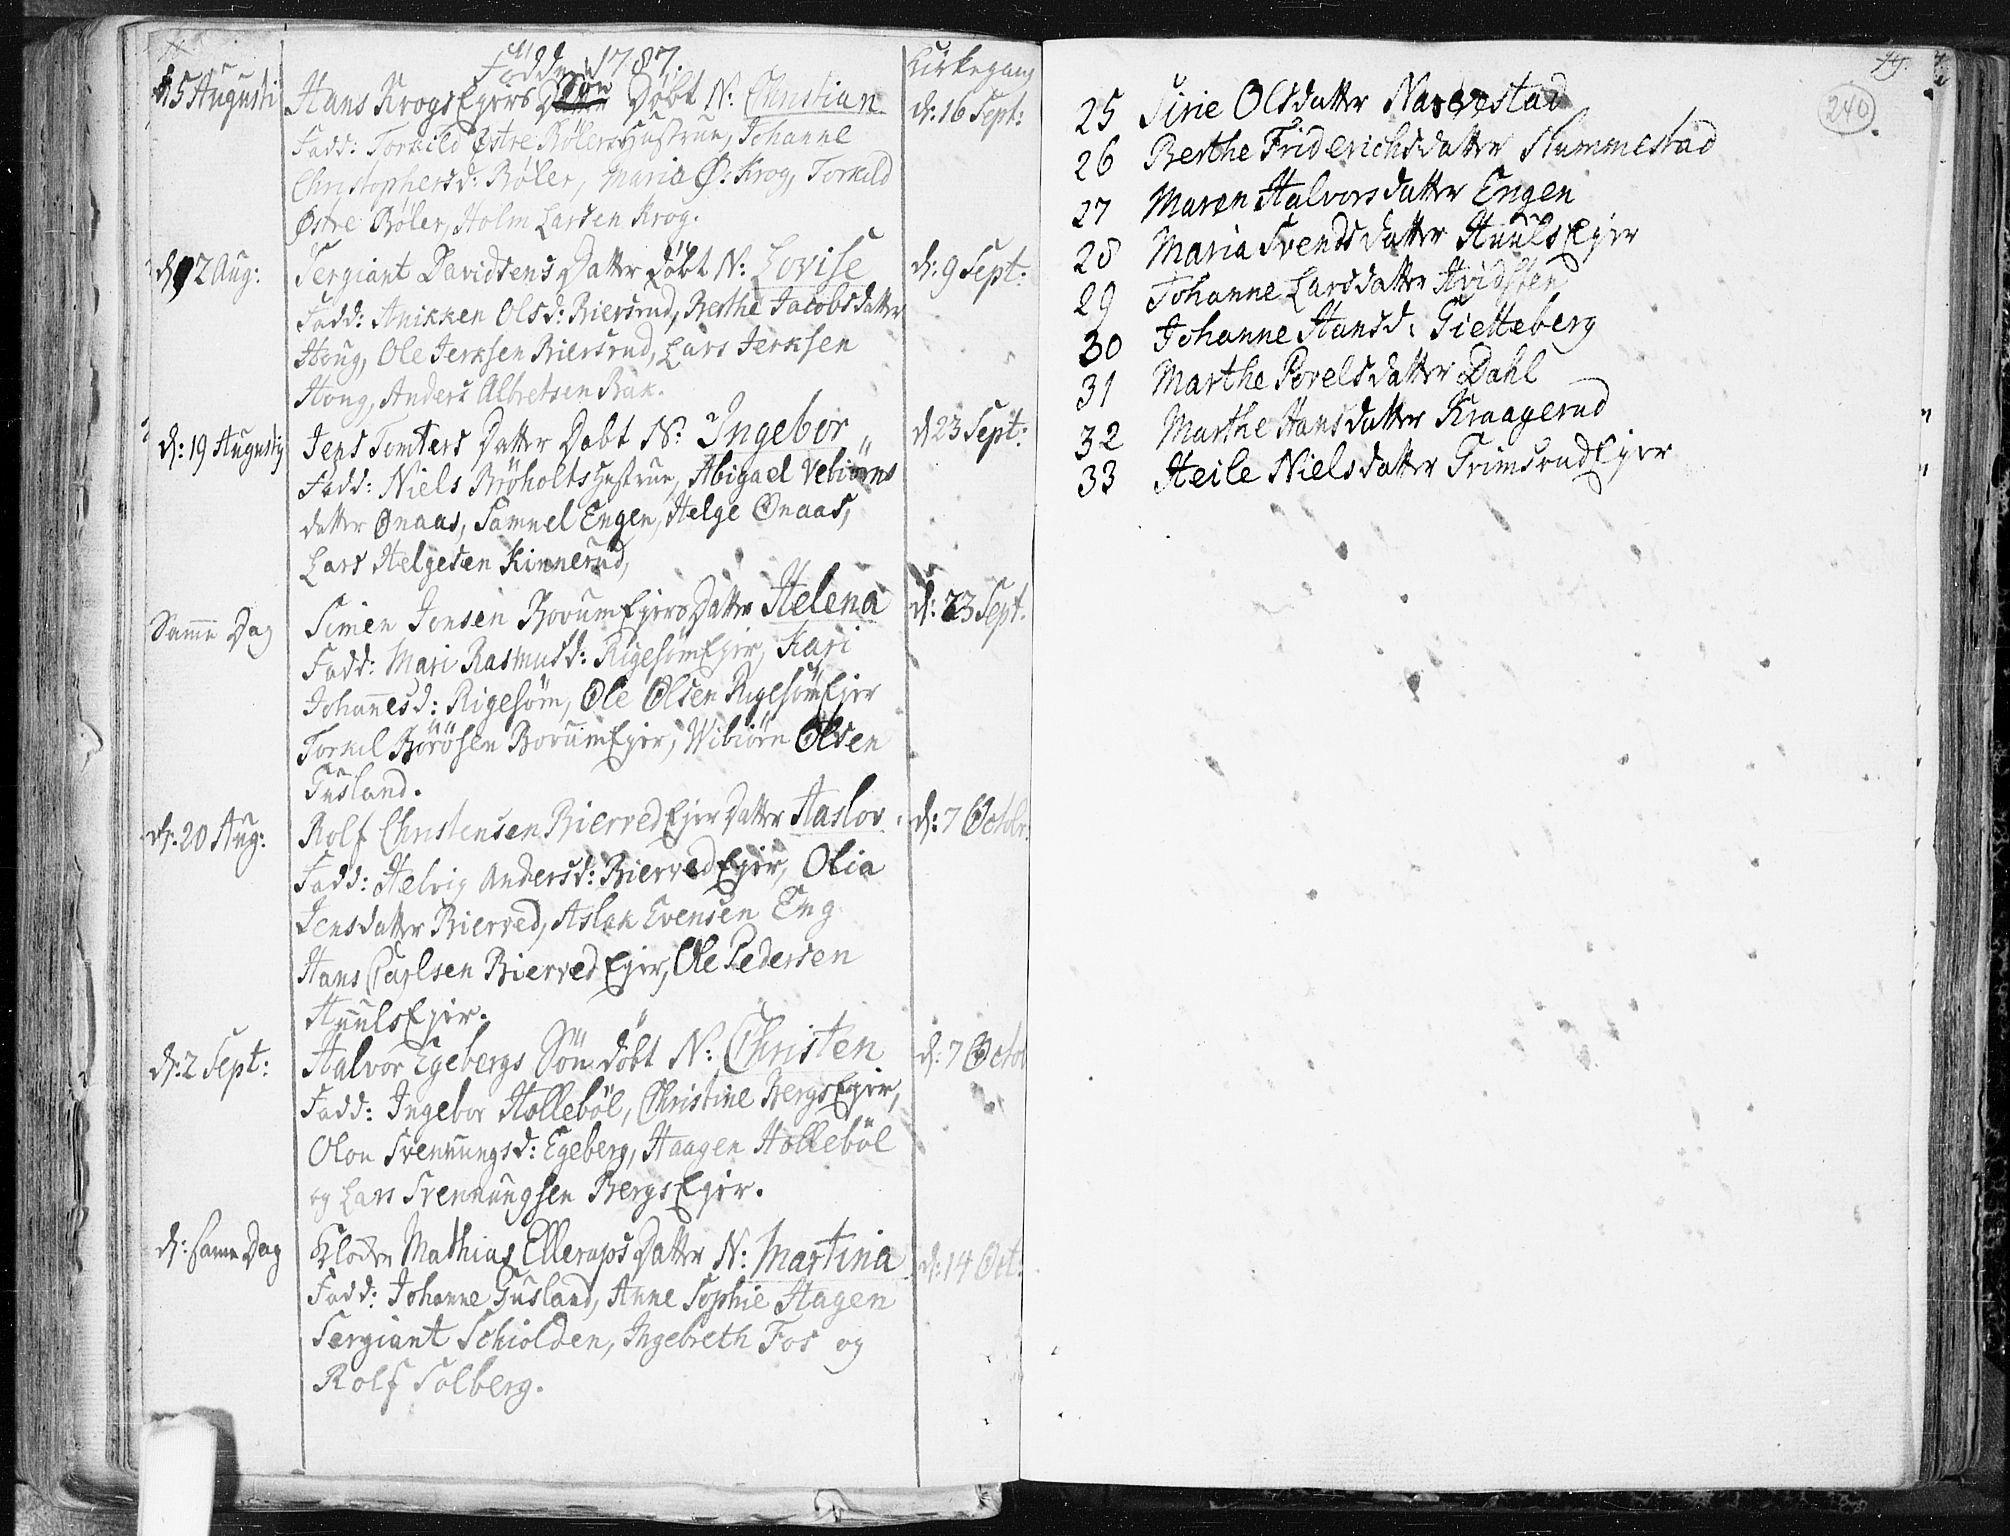 Födde 1787.
Kirkegang
15 Augusti Hans Krogs Ejers Søn Døbt N: Christian d: 16 Sept:
Fadd: Torkild Østre Bølers Hustrue, Johanne
Christophersd: Bøler, Maria Ø: Krog, Torkild
Østre Bøler, Holm Larsen Krog.
d: 12 Aug: Sergiant Davidsens Datter døbt N: Lovise d: 9 Sept:
Fadd: Anikken Olsd: Biersrud, Berthe Jacobsdatter
Houg, Ole Jerksen Biersrud, Lars Jerksen
Houg, Anders Albretsen Rak.
d: 19 Augustij Jens Tomters Datter Døbt N: Ingebor d 23 Sept:
Fadd: Niels Brøholts Hustrue, Abigael Vebiörns
datter Ønaas, Samuel Engen, Helge Ønaas,
Lars Helgesen Kinnerud,
Samme Dag Simen Jensen Borum Ejers Datter Helena d: 23 Sept.
Fadd: Mari Rasmusd: Rigesöm Ejer, Kari
Johannesd: Rigesöm, Ole Olsen Rigesöm Ejer
Torkel Börösen Borum Ejer, Wibiörn Olsen
Tusland.
d: 20 Aug: Rolf Christensen Bierved Ejer Datter Aaslov d: 7 Octobr.
Fadd: Helvig Andersd: Bierved Ejer, Olia
Jensdatter Bierved, Aslak Evensen Eng
Hans Carlsen Bierved Ejer, Ole Pedersen
Huuls Ejer.
d: 2 Sept: Halvor Egebergs Sön döbt N: Christen d: 7 Octob
Fadd: Ingebor Holleböl, Christine Bergs Ejer,
Olou Svennungsd: Egeberg, Haagen Holleböl
og Lars Svennungsen Bergs Ejer.
d: samme Dag Klocker Mathias Ellerups Datter N: Martina d: 14 Oct:
Fadd: Johanne Gusland, Anne Sophie Hagen
Sergiant Schiolden, Ingebreth Fos og
Rolf Solberg.
49.
240
25 Sirie Olsdatter Narvestad
26 Berthe Friderichsdatter Skummestad
27 Maren Halvorsdatter Engen
28 Maria Svendsdatter Huuls Ejer
29 Johanne Larsdatter Hvidsten
30 Johanne Hansd: Gietteberg
31 Marthe Povelsdatter Dahl
32 Marthe Hansdatter Kraagerud
33 Heile Nielsdatter Grimsrud Ejer